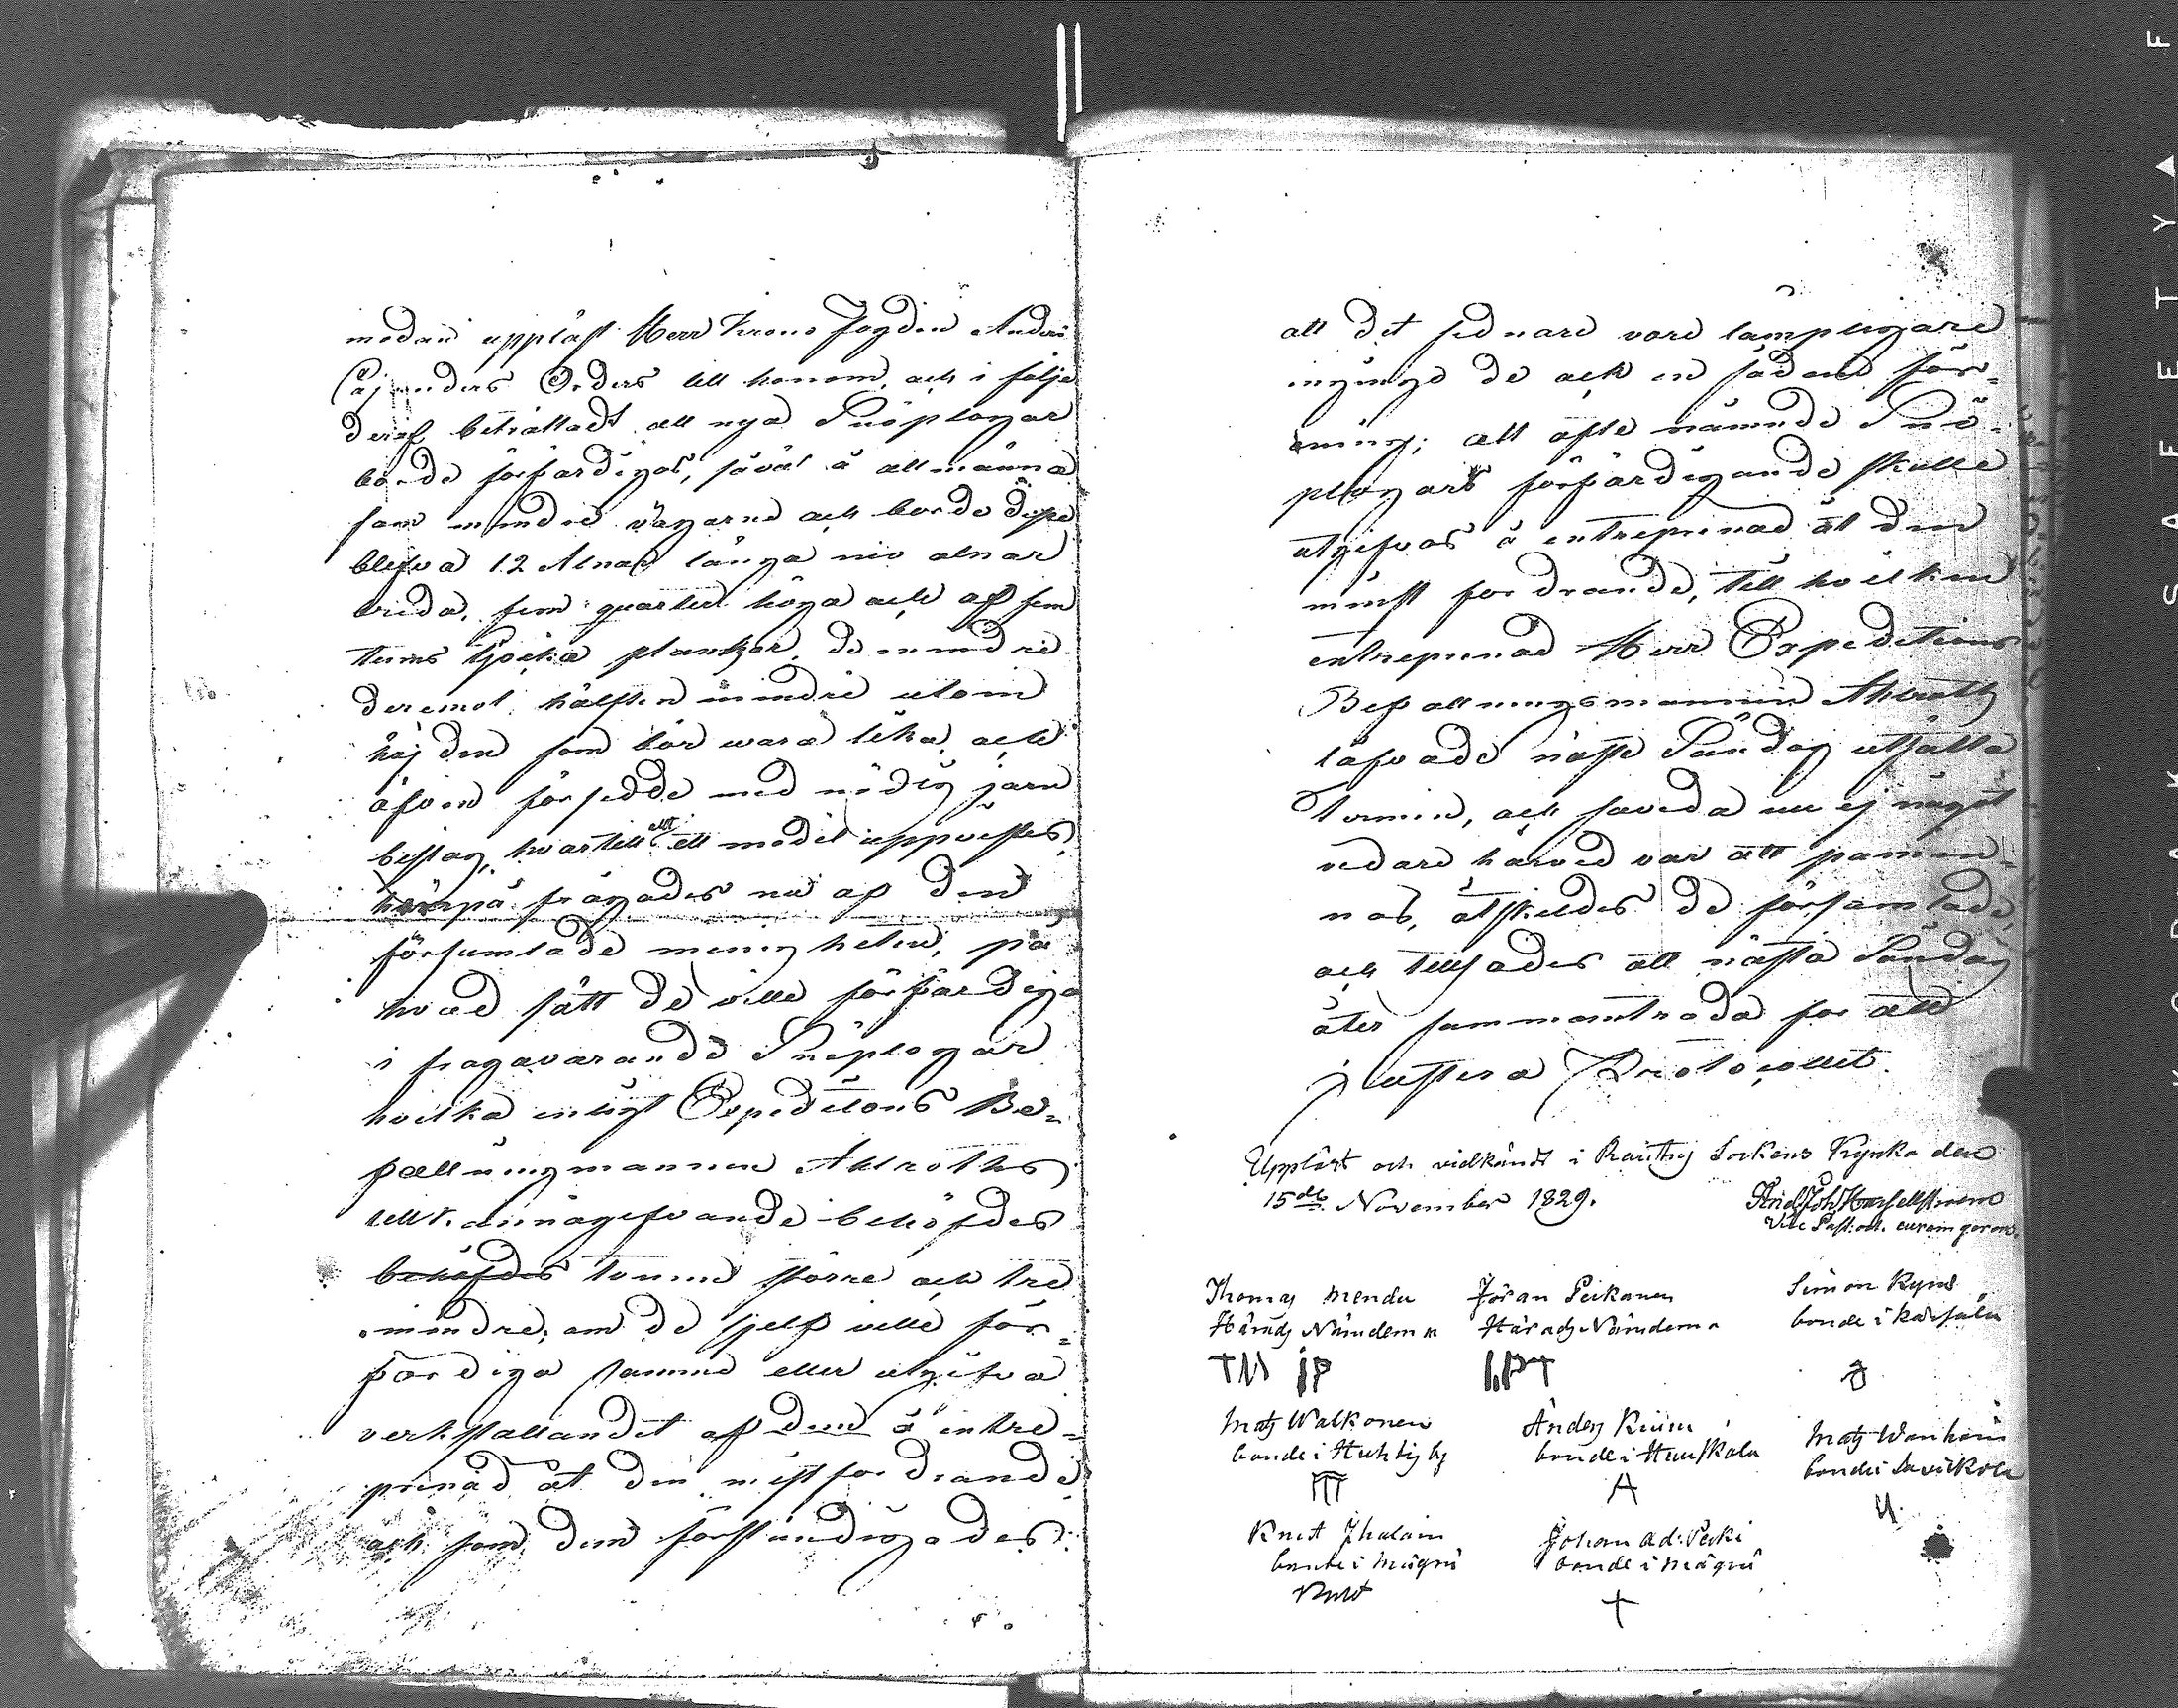 medan uppläst Herr Krono Fogden Anders
Cajanders Orders till honom, och i följe
deraf berättadt att nya Snöplogar
borde förfärdigas, såväl å allmänna
som mindre vägarne och borde desse
blifva 12 Alnar långa nio alnar
breda, fem quarter höga och af fem
tums tjocka plankor, de mindre
deremot hälften mindre utom
höjden som bör wara lika, och
äfven försedde med nödig jern
beslag, hvartill ett modell uppvistes,
härpå frågades nu af den
församlade menigheten, på
hvad sätt de ville förfärdiga
i fragavarande Snöplogar
hvilka enligt Expeditions Be-
fallningmannen Ahlroths
tillkännagifvande behöfdes
behöfdes större och tre
mindre, om de sjelf ville för-
färdiga samme eller utgifva
verkställandet af dem å entre-
prenad åt den minstfordrande
och som dem förständigades
att det sednare vore lämpligare
ingingo de ock en sådan för-
ening; att ofte nämnde Snö-
plogars förfärdigande skulle
utgifvas å entreprenad åt den
minst fordrande, till hvilken
entreprenad Herr Expeditions
Befallningsmannen Ahlroth
låfvade näste Söndag utsätta
Termin, och såvida nu ej något
vidare härvid var att påmin-
nas, åtskildes de församlade,
och tillsades att nästa Söndag
åter sammanträda for att
justera Protocollet.
Uppläst och vidkändt i Rautus Sockens Kyrka den
15de November 1829.
Vice Past: och. curam gerens.
Thomas Mendu Jöran Peikonen Simon Kyne
Härads Nämdeman Härads Nämdeman bonde i
TM IP IPT
Mats Walkonen Anders Kiuru Mats Wanhain
bonde i Huhtis by bonde i Huuskala bonde i Savikola
A
Knut Ihalain Johan Ad: Pecki
bonde i Mägrä bonde i Mägrä
Knut